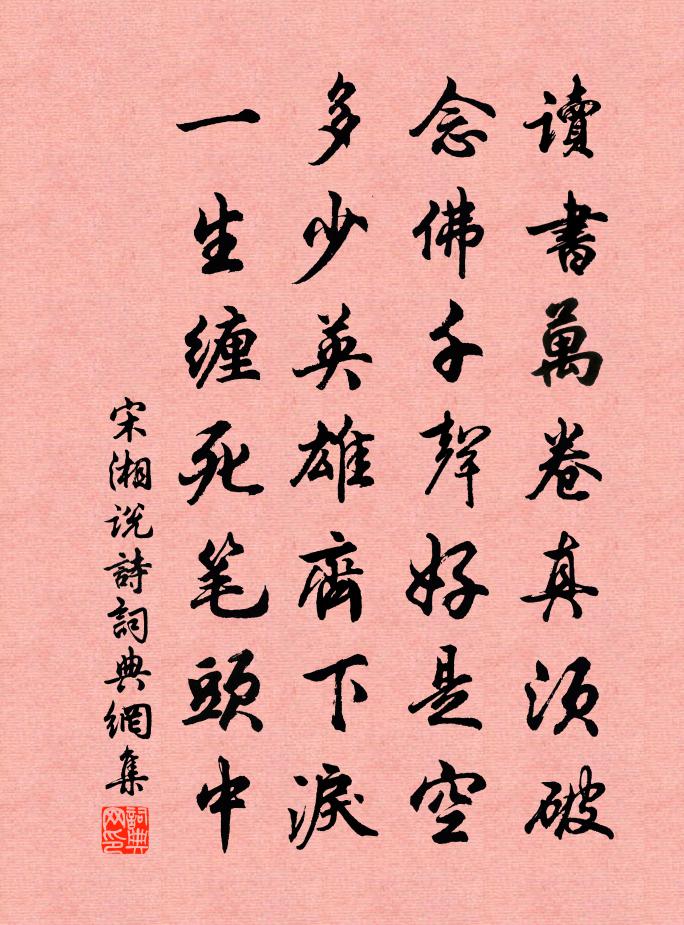 讀書萬卷真須破
念佛千聲好是空
多少英雄齊下淚
一生缠死笔頭中
宋湘说詩詞典網集
詞典网印